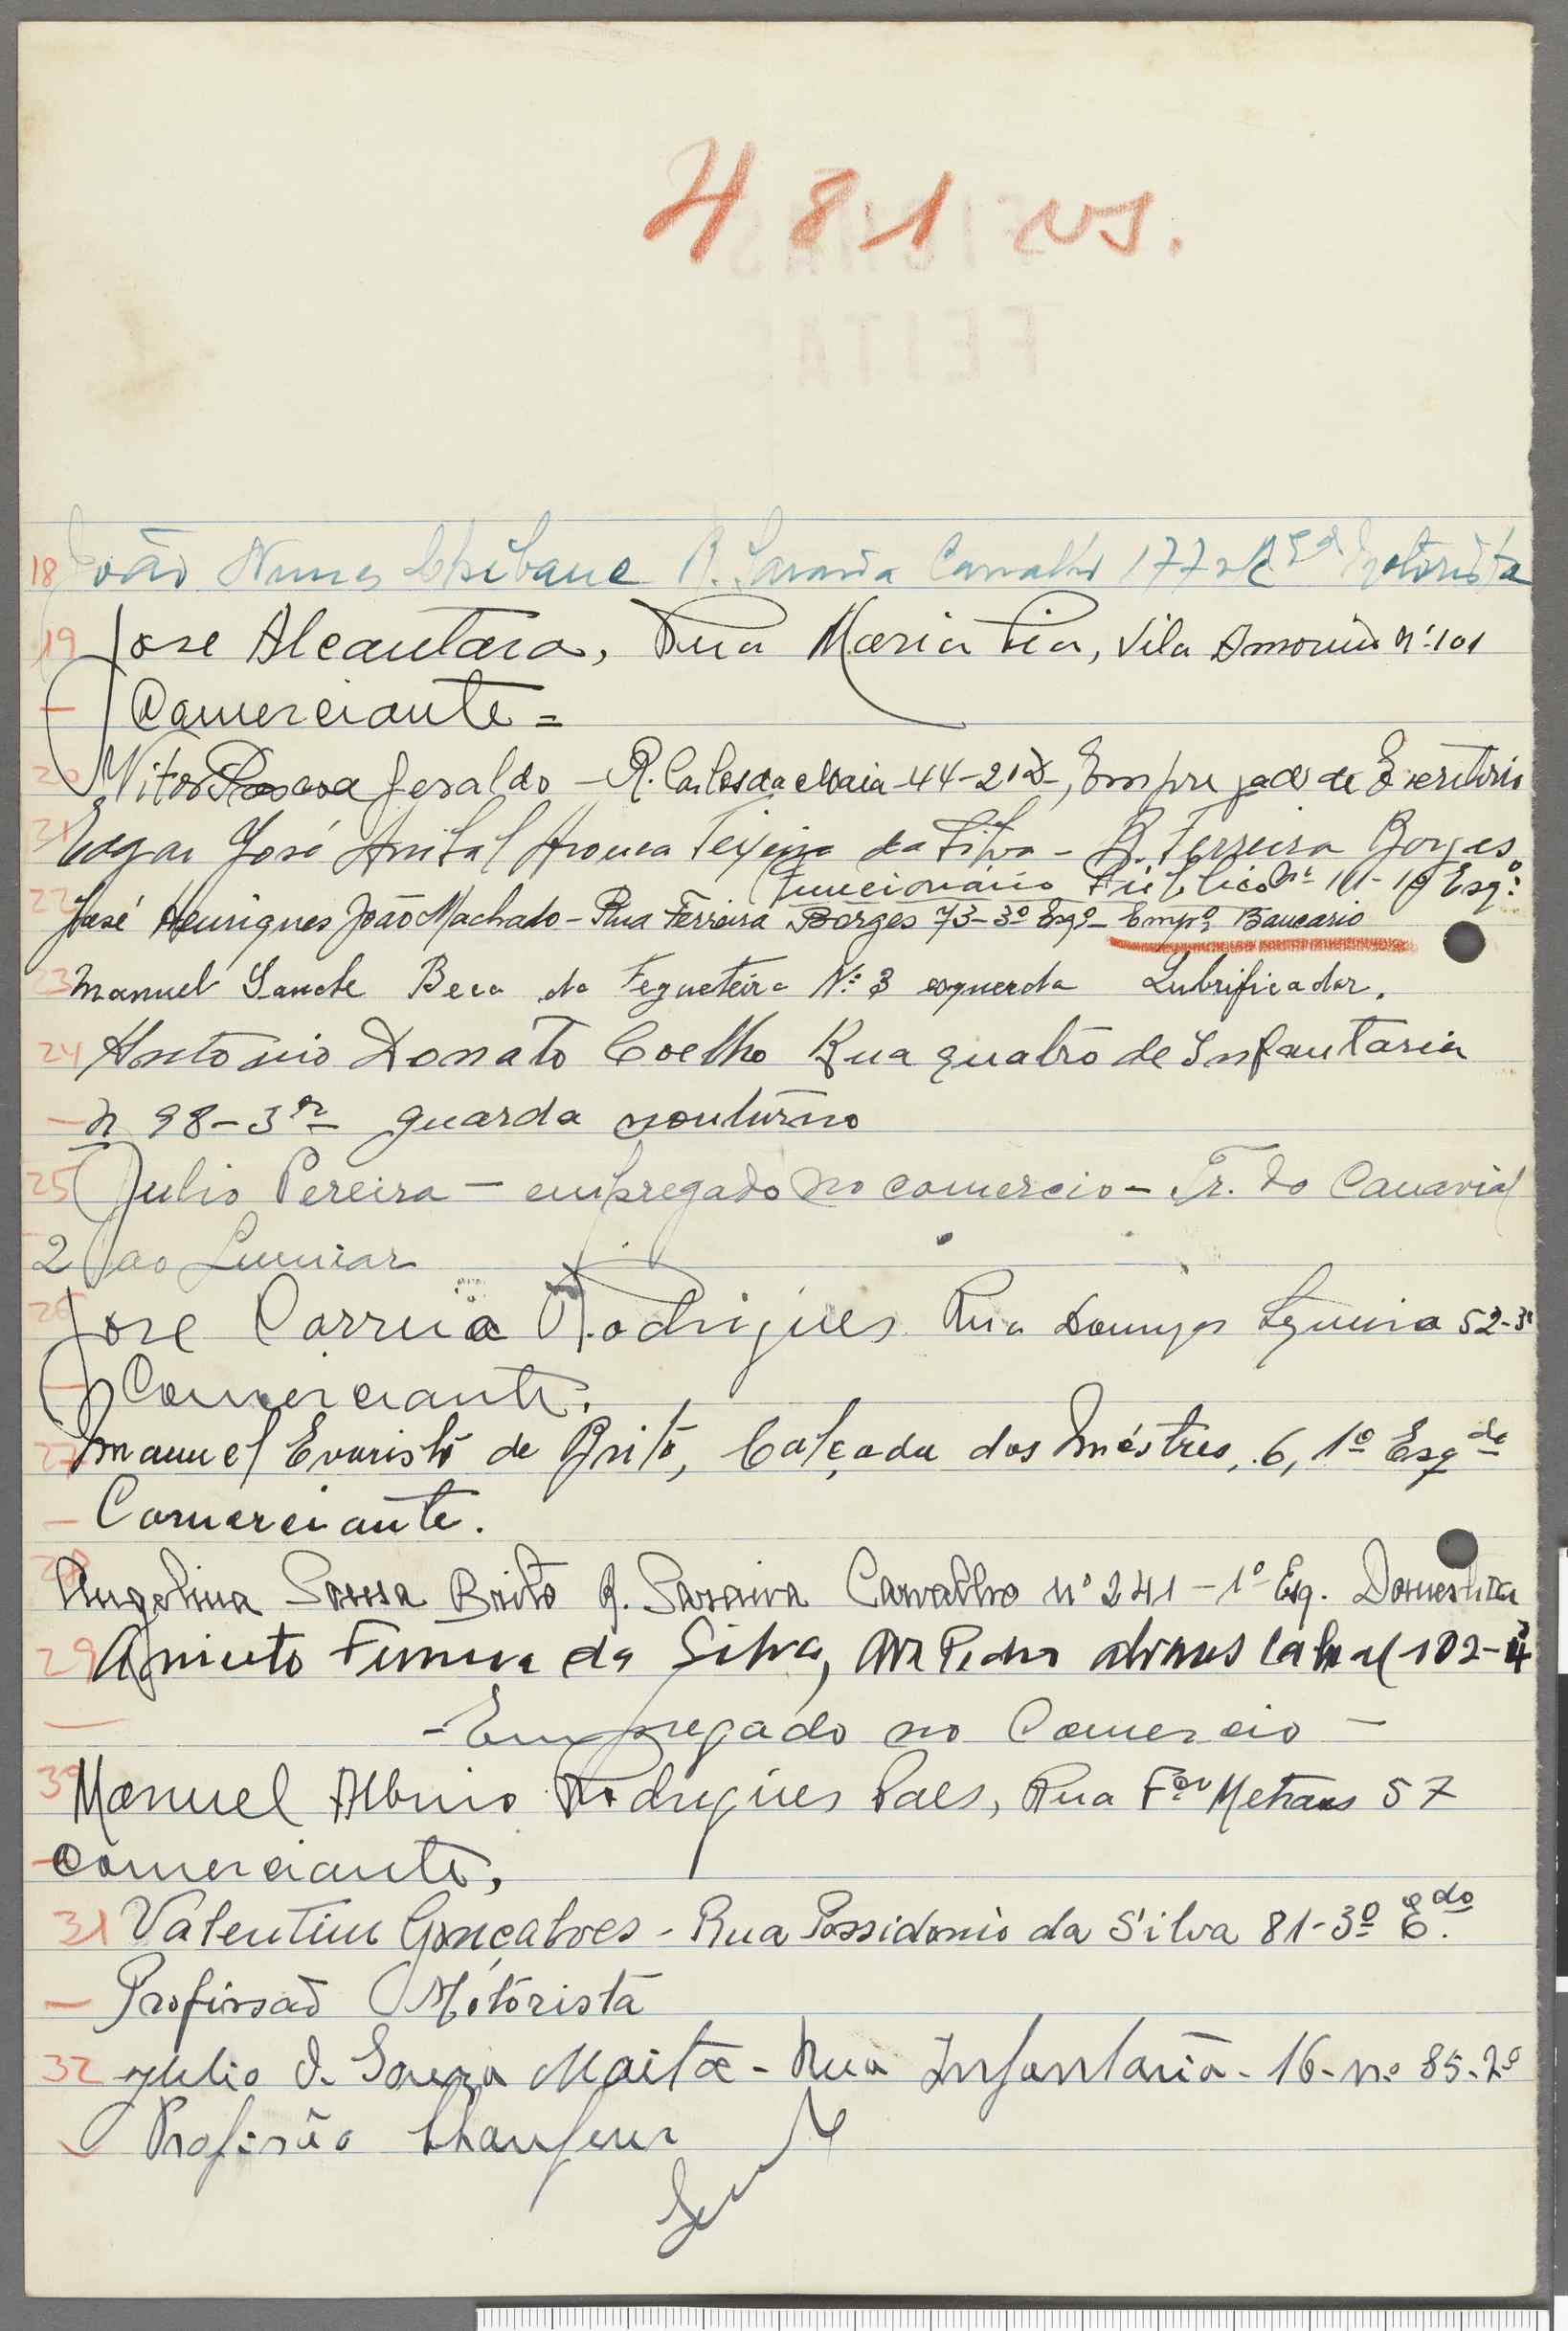 481 vs.
18 João Nunes R. Saraiva Carvalho 177 Motorista
19 Jose Alcantara, Rua Maria Pia, Vila Amorim nº 101
Comerciante =
20 Vitor Geraldo - R. Carlos da Maia - 44-2º D-, Empregado de Escritorio
21 Edgar José Anibal Arouca Teixeira da Silva - R. Ferreira Borges
Funcionário Público Nº 111-1º Esqº.
22 José Henriques João Machado - Rua Ferreira Borges 73-3º Esqº - Empº Bancario
23 Manuel Beco da Nº 3 esquerda Lubrificador.
24 António Donato Coelho Rua quatro de Infantaria
- n 98-3º guarda nouturno
25 Julio Pereira - empregado no comercio - Tr. do Canavial
2 ao Lumiar
26 Jose Correia Rodrigues Rua Domingos Sequeira 52-3º
- Comerciante.
27 Manuel Evaristo de Brito, Calçada dos Méstres, 6, 1º Esqda
- Comerciante.
28 Angelina Sousa Brito R. Saraiva Carvalho nº 241-1º Esq. Domestica
29 da Silva, Pedro Alvares Cabral 102-4
- Empregado no Comercio -
30 Manuel Albino Rodrigues Paes, Rua Metrass 57
- comerciante,
31 Valentim Gonçalves - Rua Possidonio da Silva 81-3º E.do
- Profissão Motorista
32 Julio d. Souza - Rua Infantaria - 16 - nº 85-2º
Profissão Chaufeur